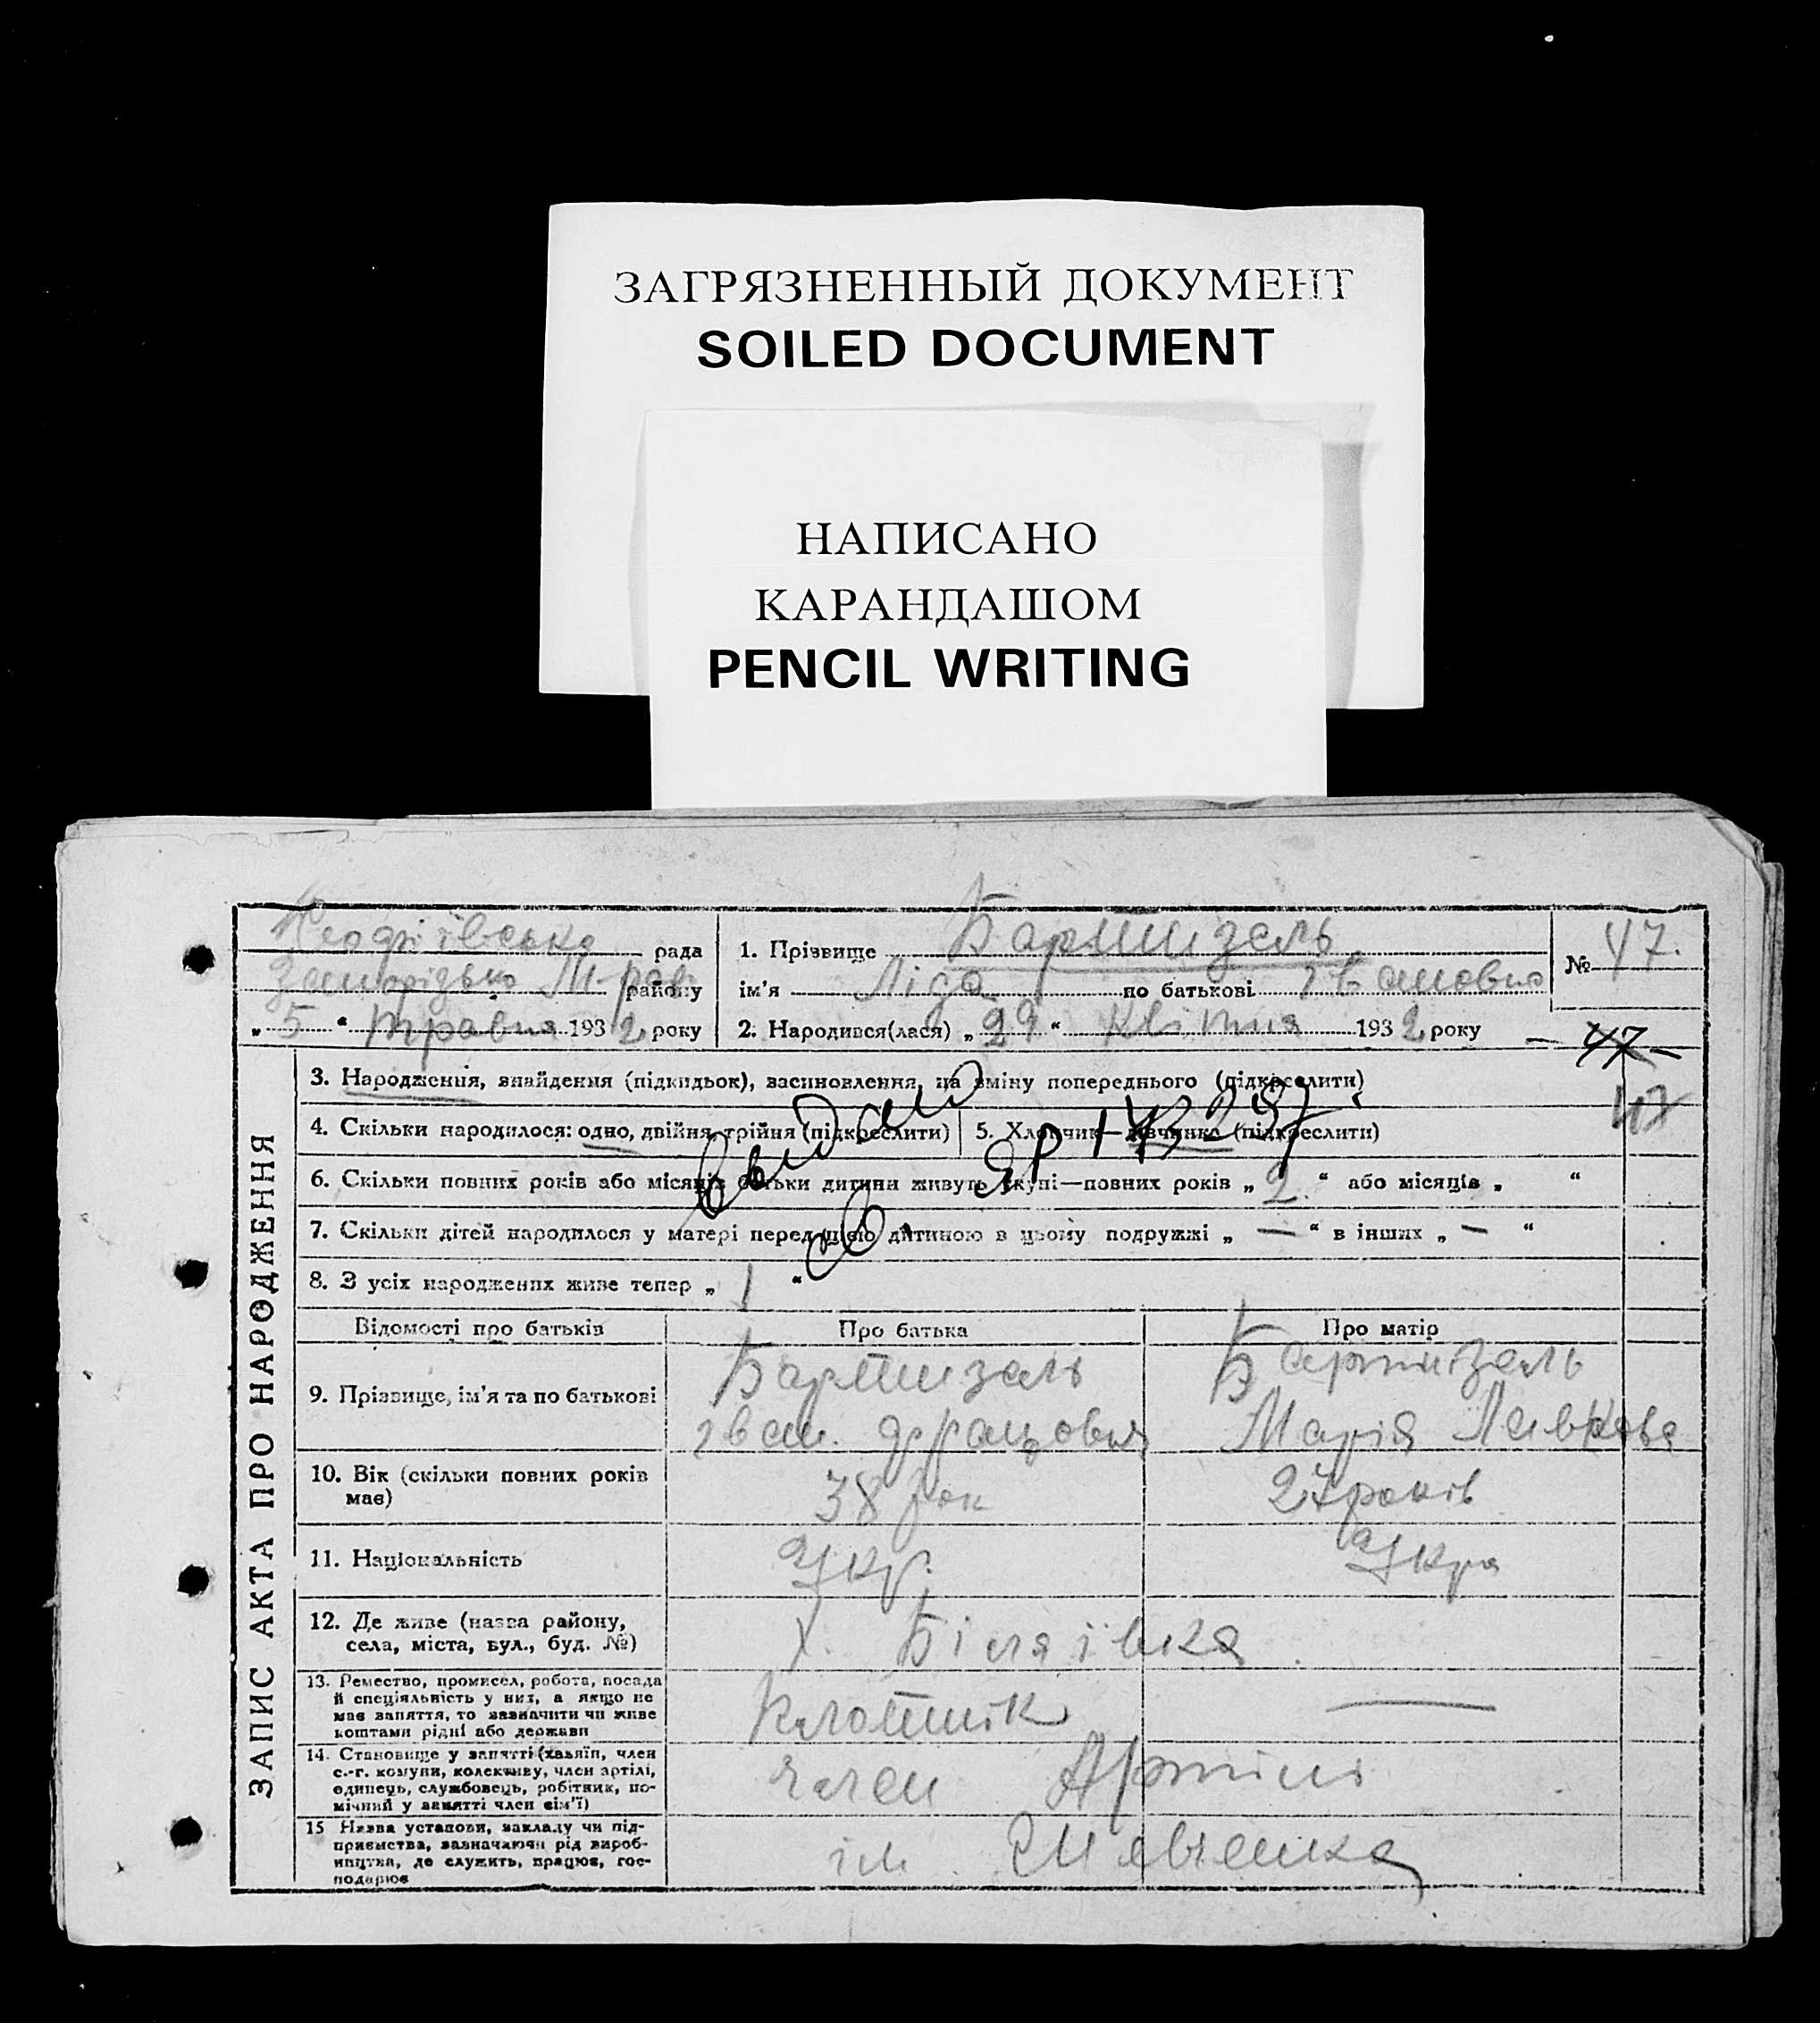 ЗАГРЯЗНЕННЫЙ ДОКУМЕНТ
SOILED DOCUMENT
НАПИСАНО
КАРАНДАШОМ
PENCIL WRITING
рада
району
„ 5 “ травня 1932 року
1. Прізвище Бартизель
ім'я Ліда по батькові Івановна
2. Народився(лася) „ 29 “ квітня 1932 року
№ 47.
— 47 —
47
ЗАПИС АКТА ПРО НАРОДЖЕННЯ
3. Народження, знайдення (підкидьок), засиновлення, на зміну попереднього (підкреслити)
4. Скільки народилося: одно, двійня, трійня (підкреслити)
5. Хлопчик—дівчинка (підкреслити)
6. Скільки повних років або місяців батьки дитини живуть укупі—повних років „ 2 “ або місяців „ “
7. Скільки дітей народилося у матері перед цією дитиною в цьому подружжі „ — “ в інших „ — “
8. З усіх народжених живе тепер „ 1 “
Відомості про батьків
Про батька
Про матір
9. Прізвище, ім'я та по батькові
Бартизель
Іван. Францович
Бартизель
Марія
10. Вік (скільки повних років
має)
38 рок
27 років
11. Національність
Укр.
Укра
12. Де живе (назва району,
села, міста, вул., буд. №)
х. Біляївка
13. Ремество, промисел, робота, посада
й спеціяльність у них, а якщо не
має заняття, то зазначити чи живе
коштами рідні або держави
Клотнік
—
14. Становище у занятті (хазяїн, член
с.-г. комуни, колективу, член артілі,
одинець, службовець, робітник, по-
мічний у занятті член сім'ї)
член Артілі
15 Назва установи, закладу чи під-
приємства, зазначаючи рід вироб-
ництва, де служить, працює, гос-
подарює
ім. Шевченка